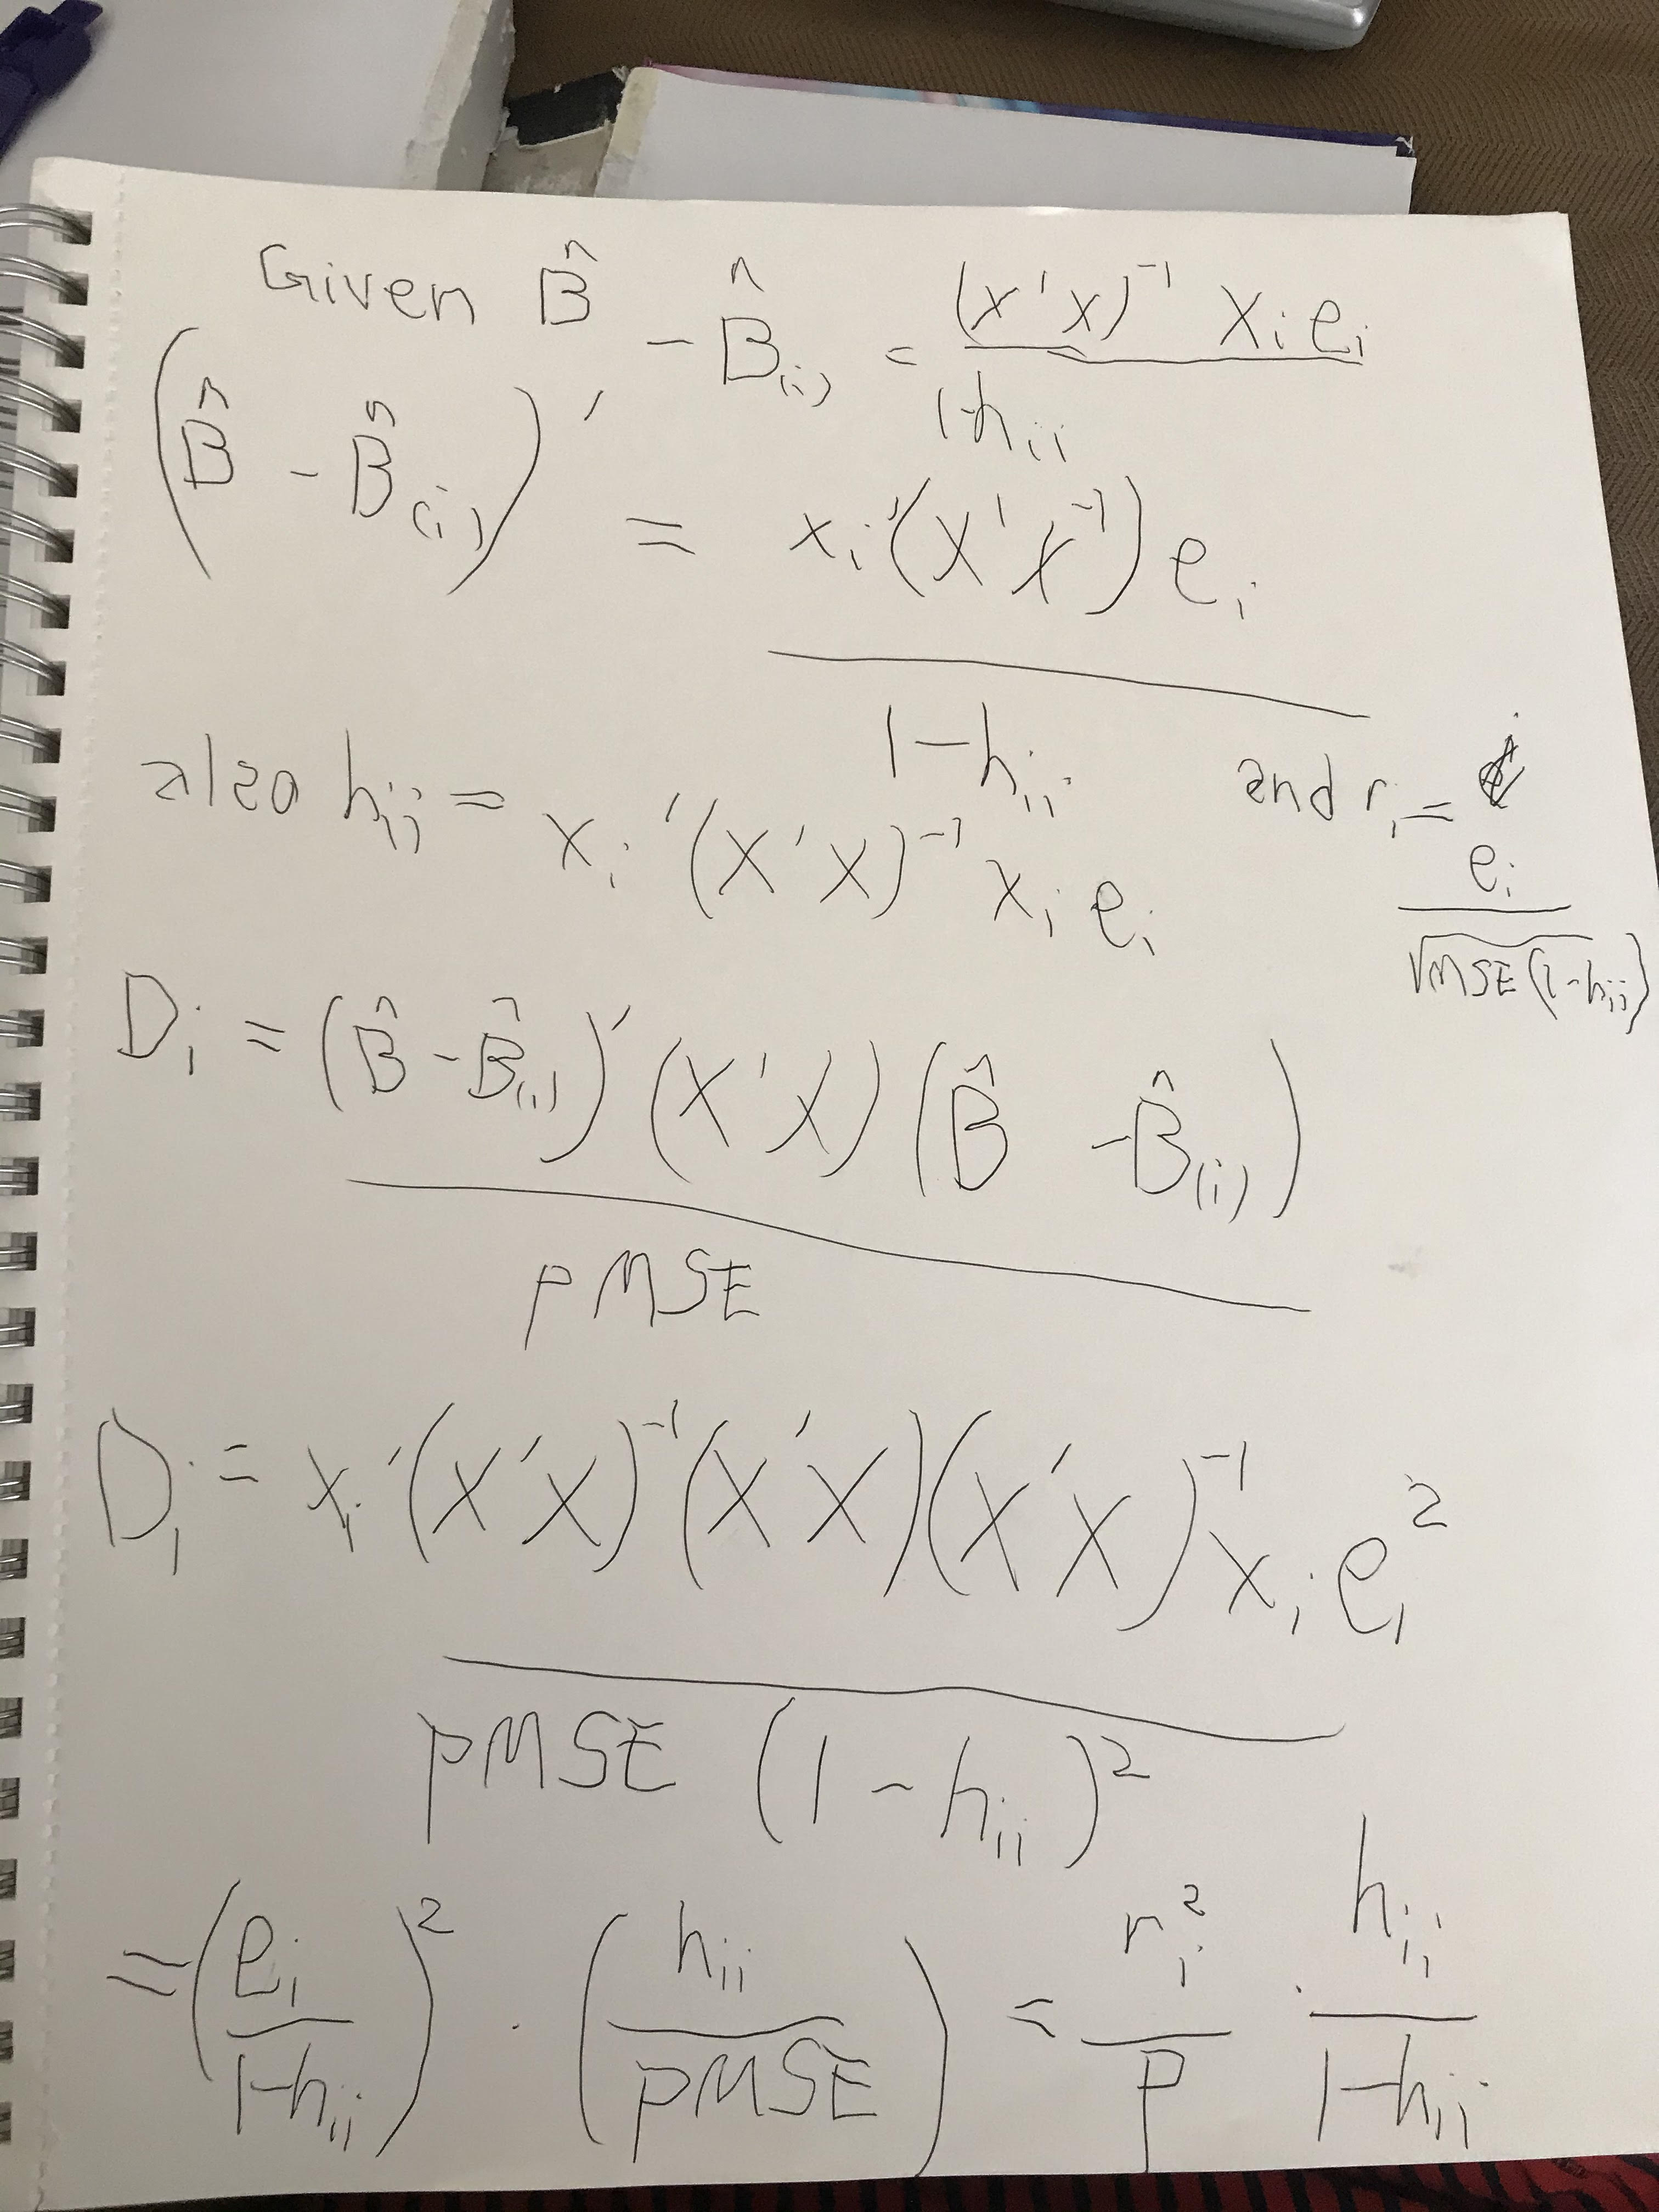 Given B̂ - B̂(i) = (x'x)⁻¹ xᵢeᵢ / 1-hᵢᵢ
(B̂ - B̂(i))' = xᵢ'(X'X⁻¹)eᵢ / 1-hᵢᵢ
also hᵢᵢ = xᵢ'(X'X)⁻¹xᵢeᵢ and rᵢ = eᵢ / √MSE(1-hᵢᵢ)
Dᵢ = (B̂ - B̂(i))'(X'X)(B̂ - B̂(i)) / pMSE
Dᵢ = xᵢ'(X'X)⁻¹(X'X)(X'X)⁻¹xᵢeᵢ² / pMSE (1-hᵢᵢ)²
= (eᵢ / 1-hᵢᵢ)² · (hᵢᵢ / pMSE) = rᵢ² / p · hᵢᵢ / 1-hᵢᵢ